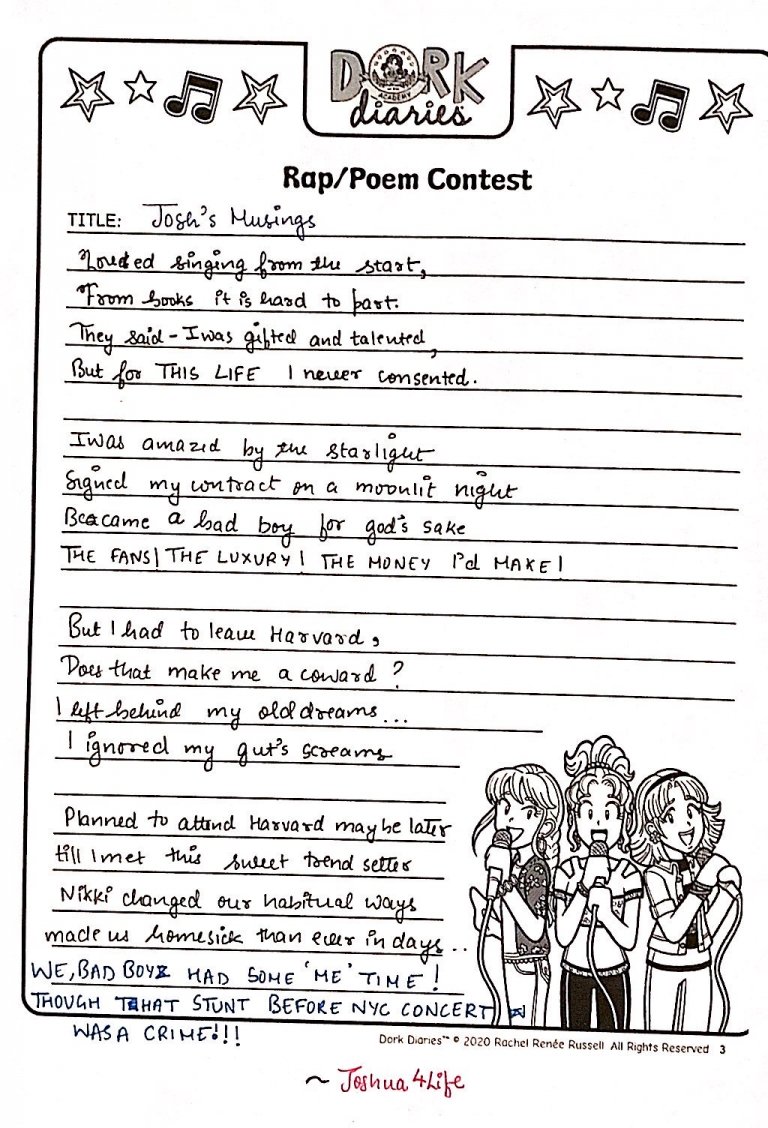 DORK
ACADEMY
diaries
Rap/Poem Contest
TITLE: Josh's Musings
Louded singing from the start,
From books it is hard to part.
They said - I was gifted and talented,
But for THIS LIFE I never consented.
I was amazed by the starlight
Signed my contract on a moonlit night
Became a bad boy for god's sake
THE FANS! THE LUXURY! THE MONEY I'd MAKE!
But I had to leave Harvard,
Does that make me a coward?
I left behind my old dreams...
I ignored my gut's screams
Planned to attend Harvard maybe later
till I met this sweet trend setter
Nikki changed our habitual ways
made us homesick than ever in days..
WE, BAD BOYZ HAD SOME 'ME' TIME!
THOUGH THAT STUNT BEFORE NYC CONCERT
WAS A CRIME!!!
Dork Diaries™ © 2020 Rachel Renée Russell All Rights Reserved 3
~ Joshua4Life